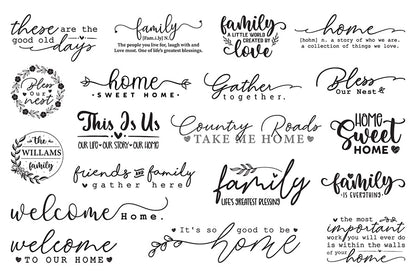 these are the
good old days
family
[Fam.i.ly] N.
The people you live for, laugh with and
Love most. One of life's greatest blessings.
family
A LITTLE WORLD
CREATED BY
love
home
[hohm] n. a story of who we are,
a collection of things we love.
Bless
Our
nest
home
SWEET HOME
Gather
together.
Bless
Our Nest &
the
WILLAMS
family
This Is Us
OUR LIFE • OUR STORY • OUR HOME
Country Roads
TAKE ME HOME
HOME
Sweet
HOME
friends and family
gather here
family
LIFE'S GREATEST BLESSING
family
IS EVERYTHING
welcome
Home.
welcome
TO OUR HOME
It's so good to be
home
the most
important
work you will ever do
is within the walls
of your home